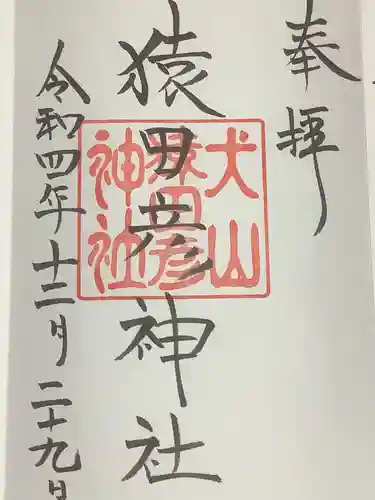 奉拝
猿田彦神社
犬山
猿田彦
神社
令和四年十二月二十九日